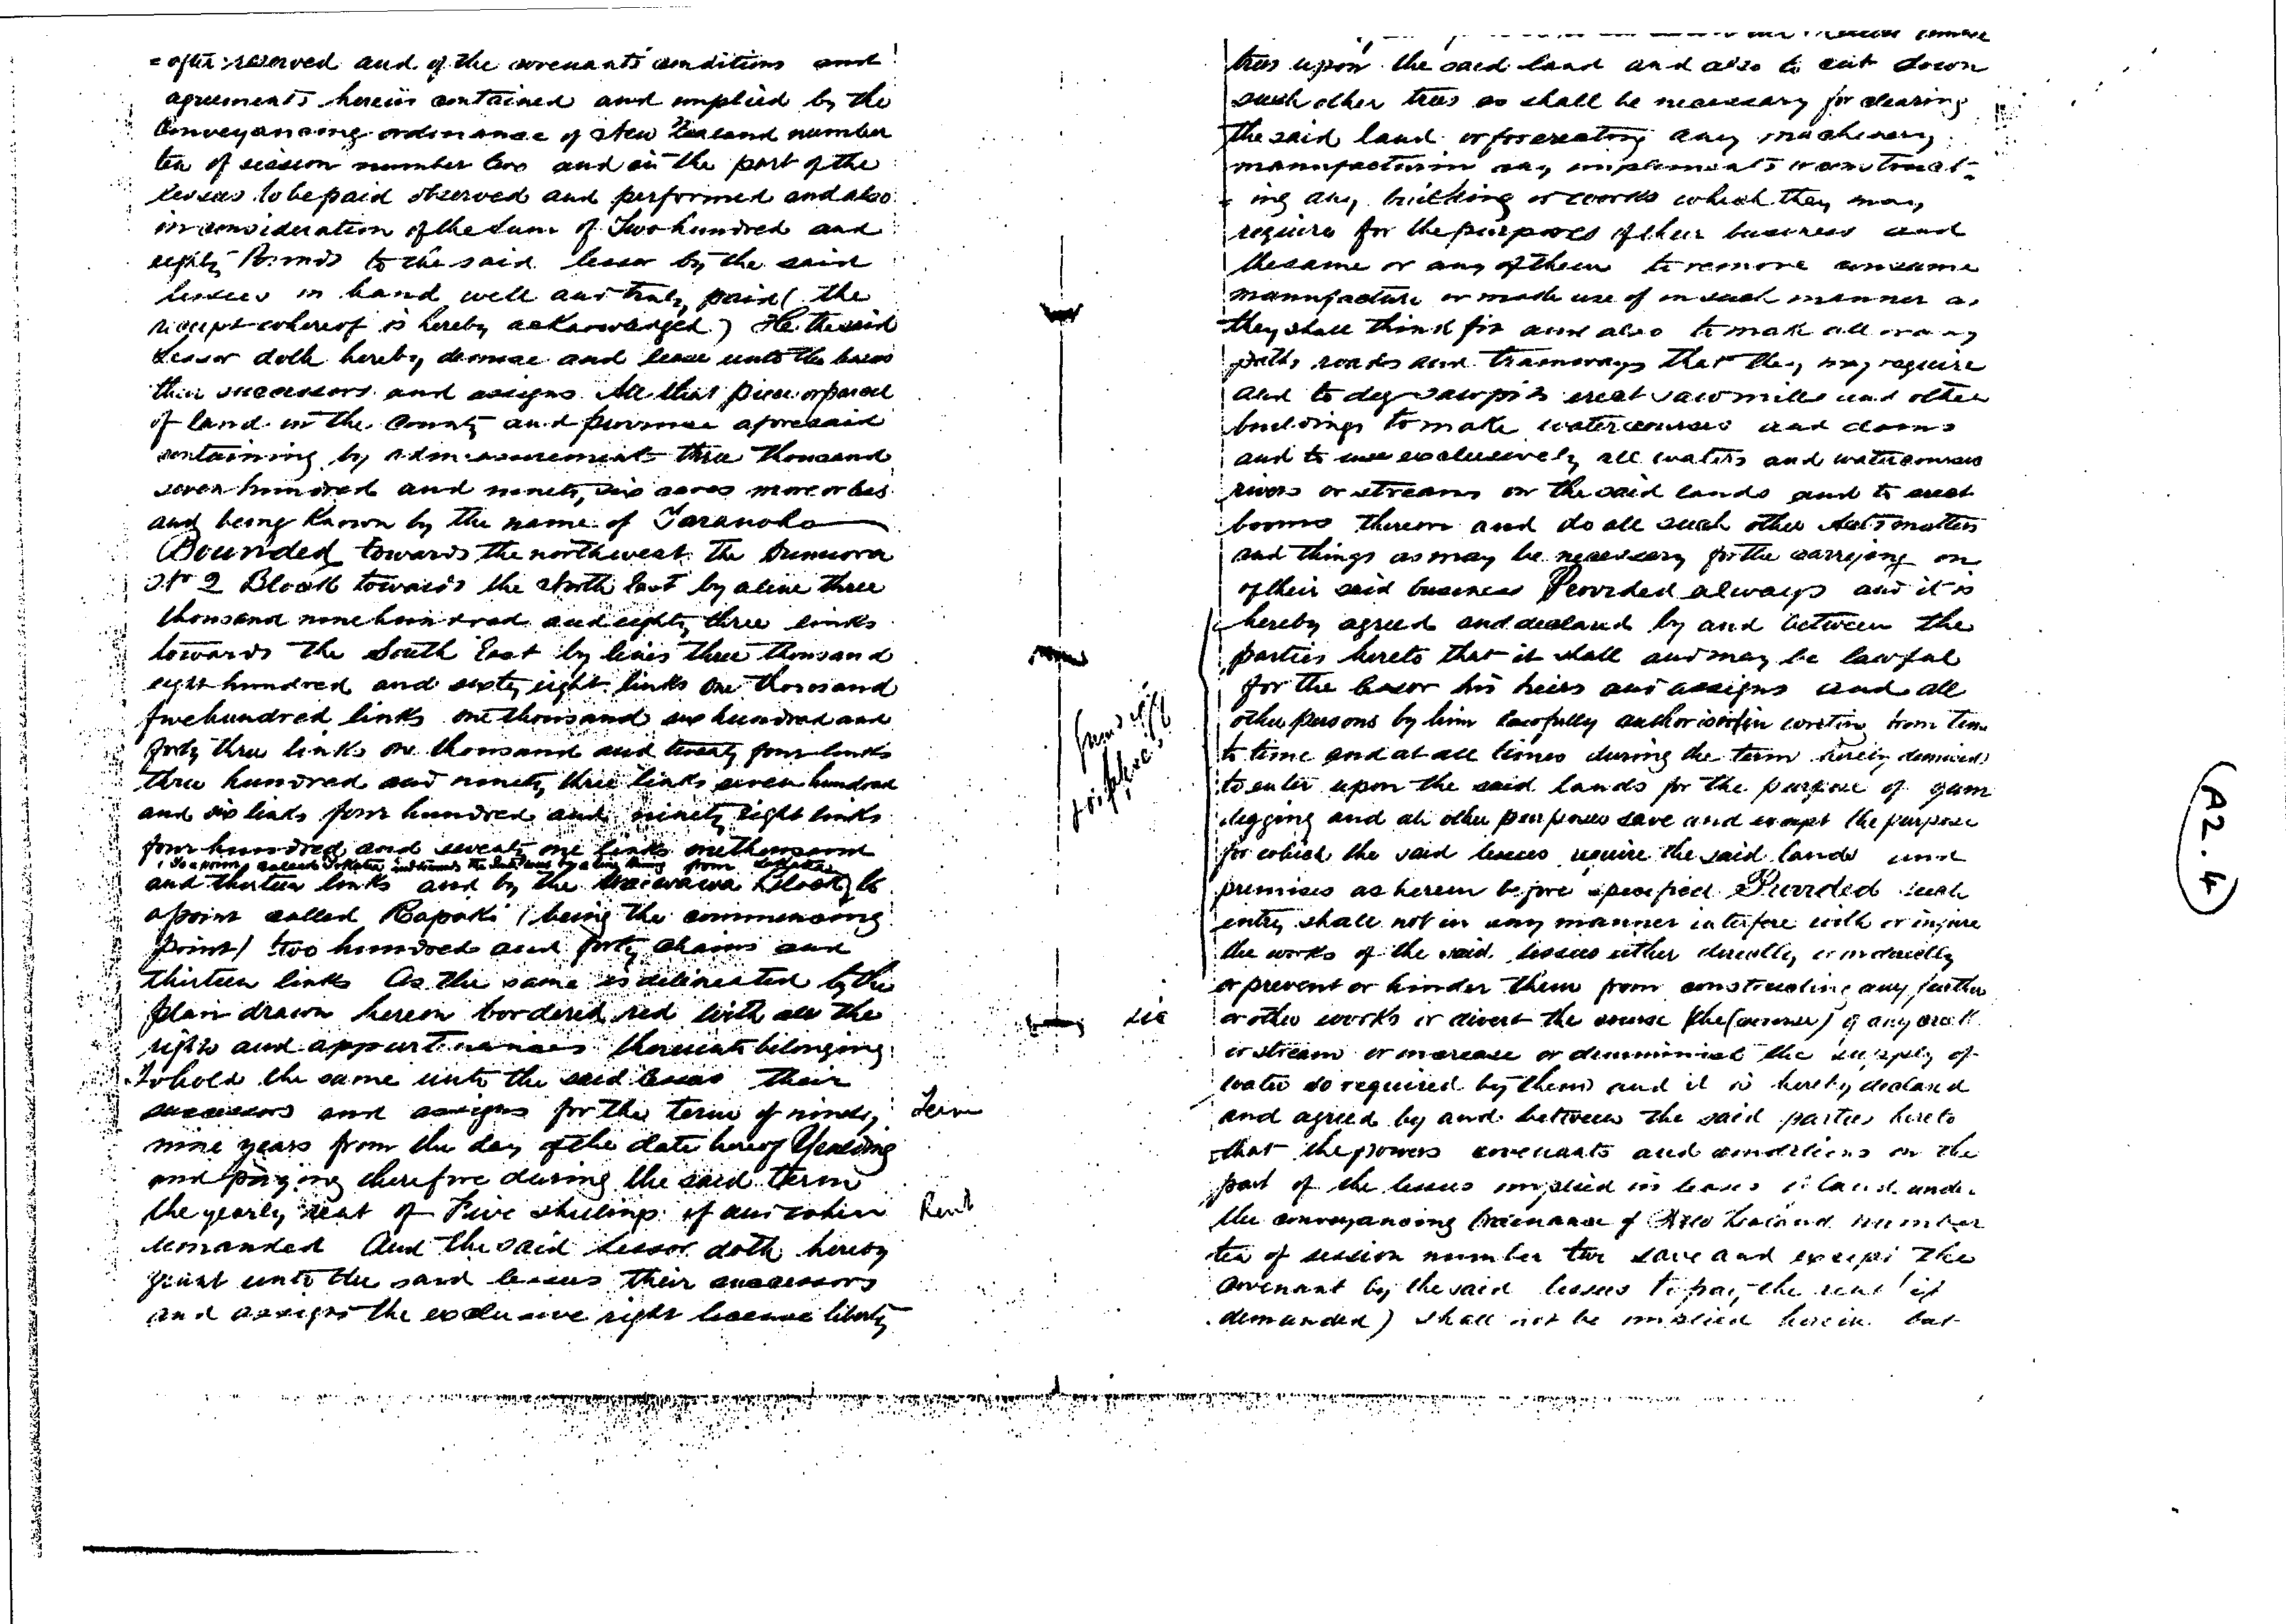 = after reserved and of the covenants conditions and
agreements herein contained and implied by the
Conveyancing ordinance of New Zealand number
ten of session number two and on the part of the
lessees to be paid observed and performed and also
in consideration of the sum of Two hundred and
eighty Pounds to the said lessor by the said
lessees in hand well and truly paid (the
receipt whereof is hereby acknowledged) He the said
Lessor doth hereby demise and lease unto the lessees
their successors and assigns All that piece or parcel
of land in the County and province aforesaid
containing by admeasurement three thousand
seven hundred and ninety six acres more or less
and being known by the name of
Bounded towards the northwest the
No 2 Block towards the North East by a line three
thousand nine hundred and eighty three links
towards the South East by lines three thousand
eight hundred and sixty eight links one thousand
five hundred links one thousand six hundred and
forty three links one thousand and twenty four links
three hundred and ninety three links seven hundred
and six links four hundred and ninety eight links
four hundred and seventy one links one thousand
to a point called and towards the by a line from
and thirteen links and by the Waiwawa Block to
a point called Rapaki (being the commencing
point) two hundred and forty chains and
thirteen links As the same is delineated by the
plan drawn hereon bordered red with all the
rights and appurtenances thereunto belonging
To hold the same unto the said lessees their
successors and assigns for the term of ninety Term
nine years from the day of the date hereof Yealding
and paying therefore during the said term
the yearly rent of Five shillings if and when Rent
demanded And the said lessor doth hereby
grant unto the said lessees their successors
and assigns the exclusive right license liberty
trees upon the said land and also to cut down
such other trees as shall be necessary for clearing
the said land or for creating any machinery
manufacturin any implements or construct-
- ing any building or works which they may
require for the purposes of their business and
the same or any of them to remove consume
manufacture or made use of in such manner as
they shall think fit and also to make all or any
paths roads and tramways that they may require
and to dig sawpits erect sawmills and other
buildings to make watercourses and dams
and to use exclusively all waters and watercourses
rivers or streams on the said lands and to erect
booms thereon and do all such other Acts matters
and things as may be necessary for the carrying on
of their said business Provided always and it is
hereby agreed and declared by and between the
parties hereto that it shall and may be lawful
for the lessor his heirs and assigns and all
other persons by him lawfully authorised in writing from time
to time and at all times during the term hereby demised
to enter upon the said lands for the purpose of gum
digging and all other purposes save and except the purpose
for which the said lessees require the said lands and
premises as herein before specified Provided such
entry shall not in any manner interfere with or injure
the works of the said lessees either directly or indirectly
or prevent or hinder them from constructing any further
sic or other works or divert the course (the (course) of any creek
or stream or increase or dimminish the supply of
water so required by them and it is hereby declared
and agreed by and between the said parties hereto
that the powers covenants and conditions on the
part of the lessees implied in leases of land under
the conveyancing Ordinance of New Zealand number
ten of session number two save and except the
covenant by the said lessees to pay the rent (if
demanded) shall not be implied herein but
A2.4